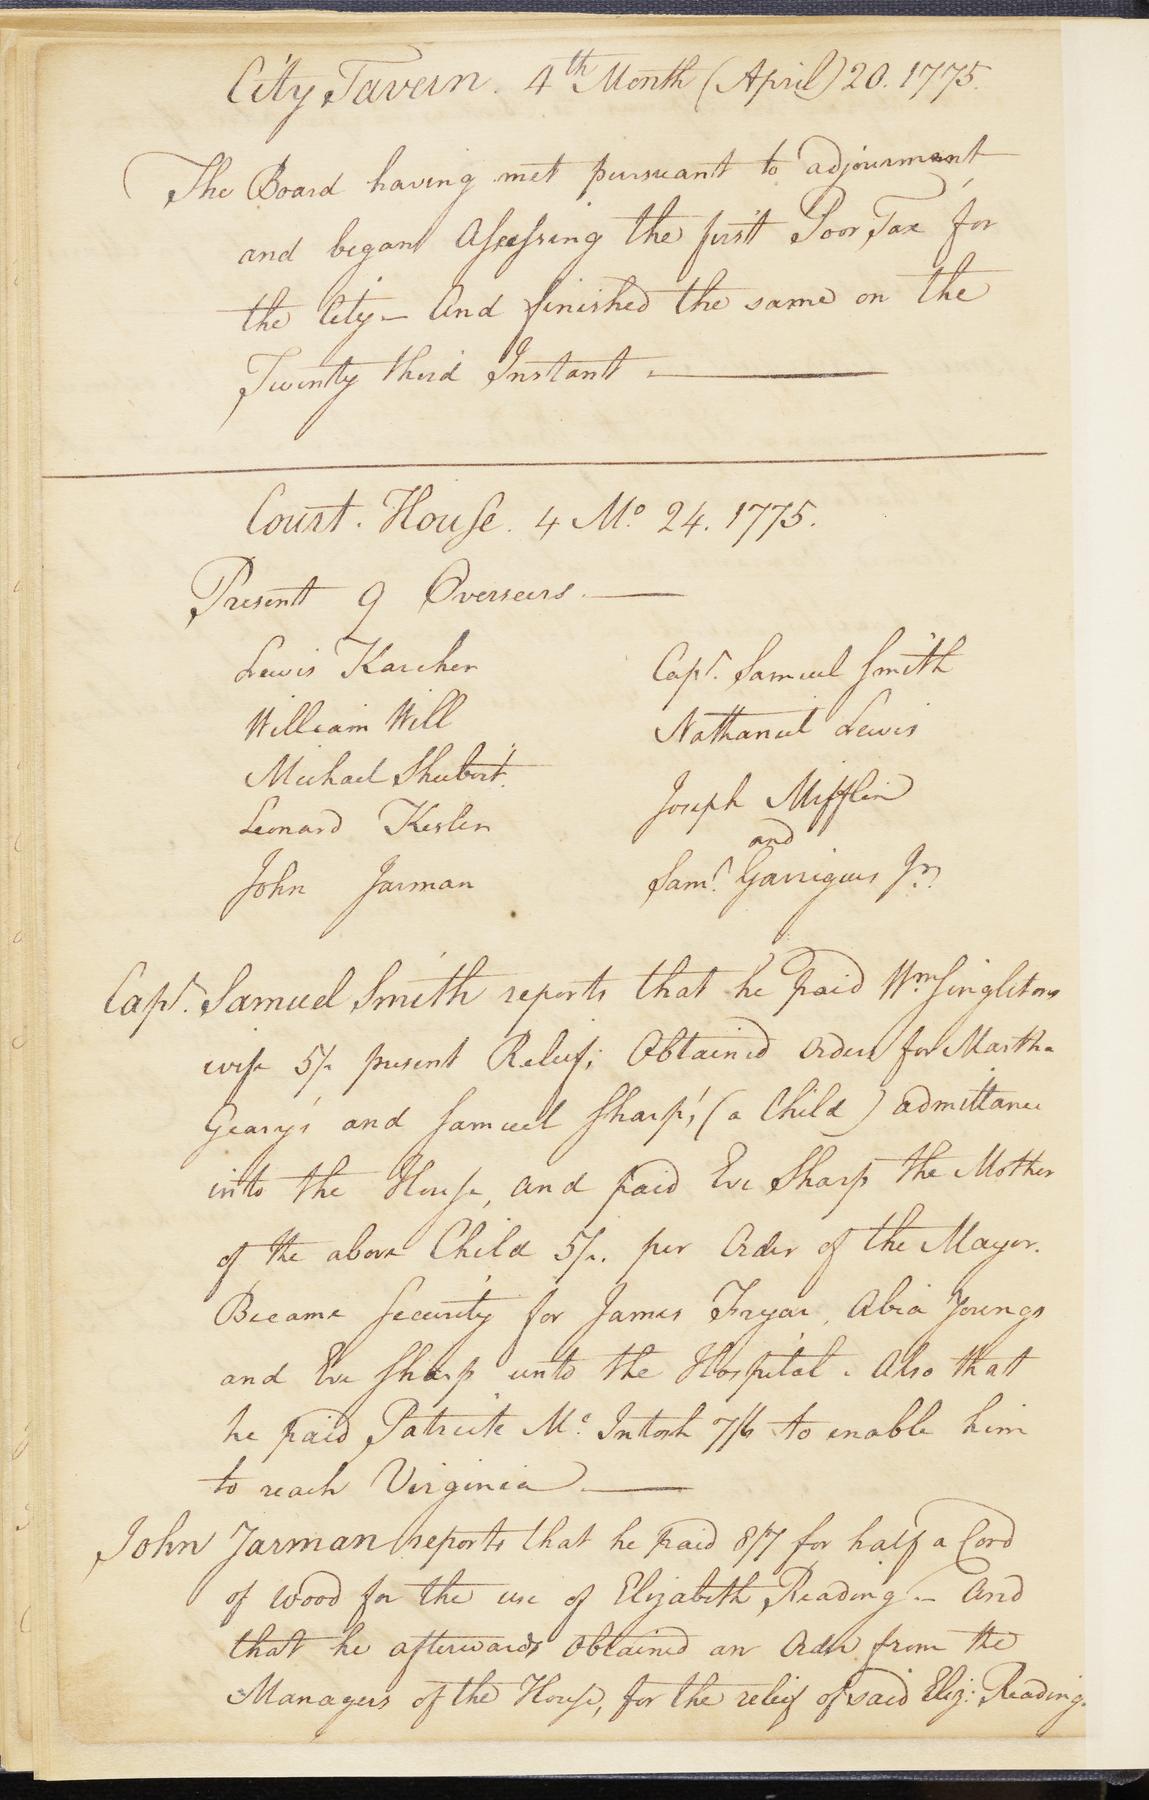 City Tavern. 4th Month (April) 20. 1775.
The Board having met pursuant to adjournment
and began Assessing the first Poor Tax for
the City — And finished the same on the
Twenty third Instant. —
Court. House. 4 Mo. 24. 1775.
Present 9 Overseers. —
Lewis Karcher
William Will
Michael Shubert.
Leonard Kesler
John Jarman
Capt. Samuel Smith
Nathaniel Lewis
Joseph Mifflin
and
Saml. Garrigues Jr.
Capt. Samuel Smith reports that he paid Wm Singletons
wife 5/. present Relief; Obtained Orders for Martha
Geary's and Samuel Sharp's, (a Child) admittance
into the House, and paid Eve Sharp the Mother
of the above Child 5/. per Order of the Mayor.
Became Security for James Fryar, Abia Youngs
and Eve Sharp unto the Hospital. Also that
he paid Patrick Mc. Intosh 7/6 to enable him
to reach Virginia. —
John Jarman reports that he paid 8/7 for half a Cord
of wood for the use of Elizabeth Reading — And
that he afterwards Obtained an Order from the
Managers of the House, for the relief of said Eliz: Reading.